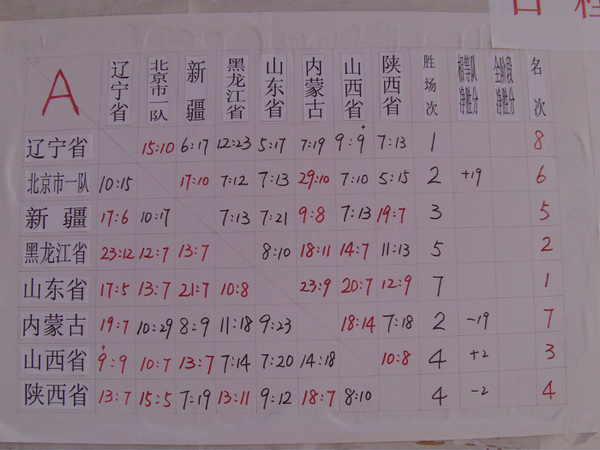 A 辽宁省 北京市一队 新疆 黑龙江省 山东省 内蒙古 山西省 陕西省 胜场次 相等队净胜分 全阶段净胜分 名次
辽宁省 15:10 6:17 12:23 5:17 7:19 9:9+ 7:13 1 8
北京市一队 10:15 17:10 7:12 7:13 29:10 7:10 5:15 2 +19 6
新疆 17:6 10:17 7:13 7:21 9:8 7:13 19:7 3 5
黑龙江省 23:12 12:7 13:7 8:10 18:11 14:7 11:13 5 2
山东省 17:5 13:7 21:7 10:8 23:9 20:7 12:9 7 1
内蒙古 19:7 10:29 8:9 11:18 9:23 18:14 7:18 2 -19 7
山西省 +9:9 10:7 13:7 7:14 7:20 14:18 10:8 4 +2 3
陕西省 13:7 15:5 7:19 13:11 9:12 18:7 8:10 4 -2 4